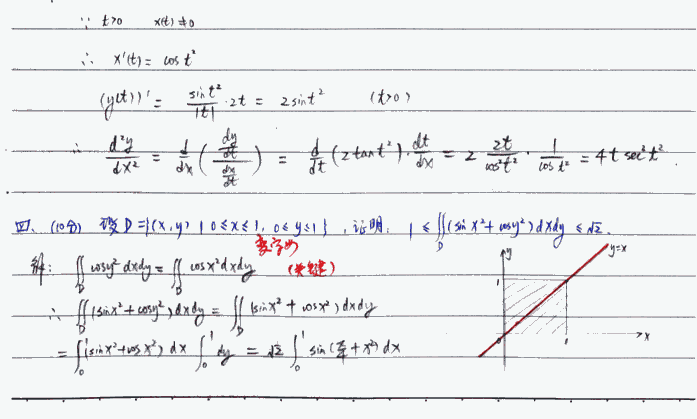 ∵ t>0 x(t)≠0
∴ x'(t) = cos t²
(y(t))' = \frac{sin t²}{|t|}·2t = 2sin t² (t>0)
∴ \frac{d²y}{dx²} = \frac{d}{dx}(\frac{\frac{dy}{dt}}{\frac{dx}{dt}}) = \frac{d}{dt}(2tan t²)·\frac{dt}{dx} = 2 \frac{2t}{cos²t²}·\frac{1}{cos t²} = 4t sec²t².
四、(10分) 设D={(x,y) | 0≤x≤1, 0≤y≤1}, 证明: 1 ≤ ∬_D (sin x²+cos y²)dxdy ≤ √2.
变字母
解: ∬_D cos y² dxdy = ∬_D cos x² dxdy (关键)
∴ ∬_D (sin x²+cos y²)dxdy = ∬_D (sin x² + cos x²)dxdy
= ∫_0^1 (sin x²+cos x²) dx ∫_0^1 dy = √2 ∫_0^1 sin(\frac{π}{4}+x²) dx
y
y=x
1
0
1
x